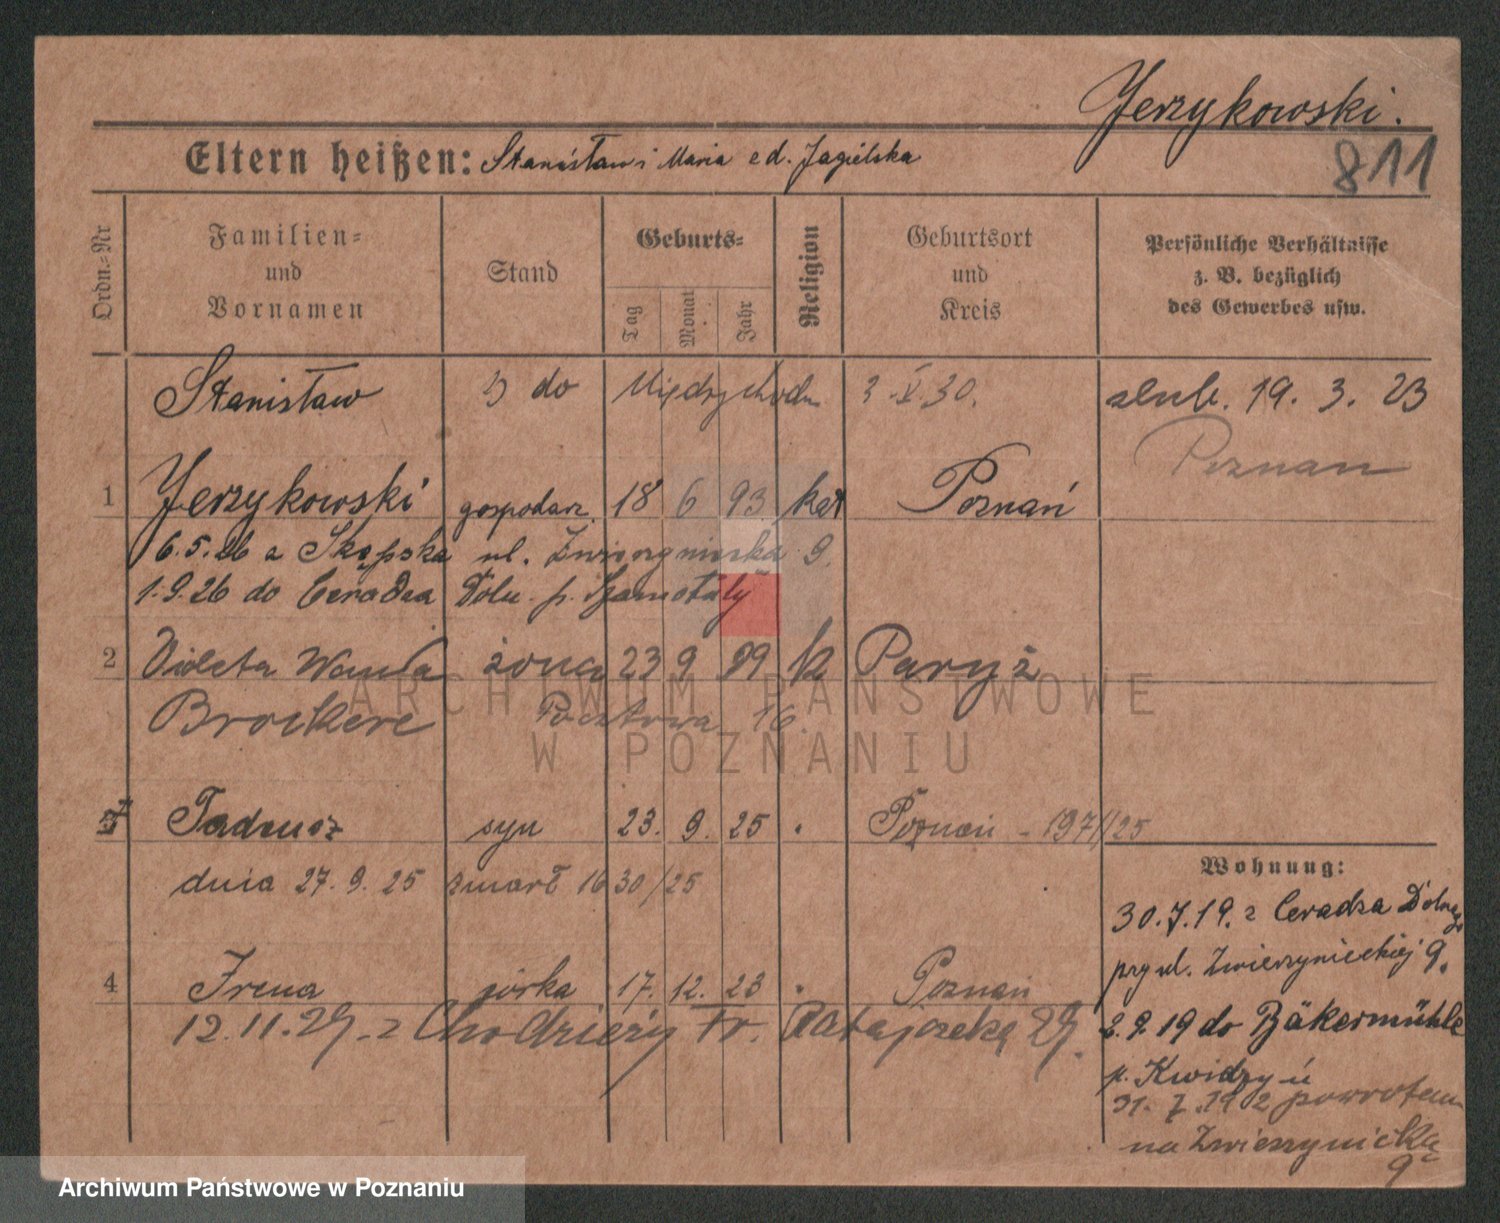 Jerzykowski.
811
Eltern heißen: Stanisław i Maria z d. Jagielska
Ordn.-Nr
Familien- und Vornamen
Stand
Geburts-
Tag
Monat
Jahr
Religion
Geburtsort und Kreis
Persönliche Verhältnisse
z. B. bezüglich
des Gewerbes usw.
Stanisław do Międzychodu 2.V.30. ślub. 19. 3. 23
Poznań
1 Jerzykowski gospodarz. 18 6 93 kat Poznań
6.5.26 z ul. Zwierzyniecka 9.
1.9.26 do Ceradza Doln. p. Szamotuły
2 Violeta Wanda żona 23 9 99 k Paryż
Pocztowa 16.
3 Tadeusz syn 23. 9. 25 " Poznań - 1971/25
dnia 27. 9. 25 zmarł 1630/25
4 Irena córka 17. 12. 23 " Poznań
12.11.29. z Chodzieży Tr. Ratajczaka 29.
Wohnung:
30.7.19. z Ceradza Dolnego
przy ul. Zwierzynieckiej 9.
2.9.19 do Bäkermühle
p. Kwidzyń
31. 7. 19 z powrotem
na Zwierzyniecką
9
ARCHIWUM PAŃSTWOWE
W POZNANIU
Archiwum Państwowe w Poznaniu